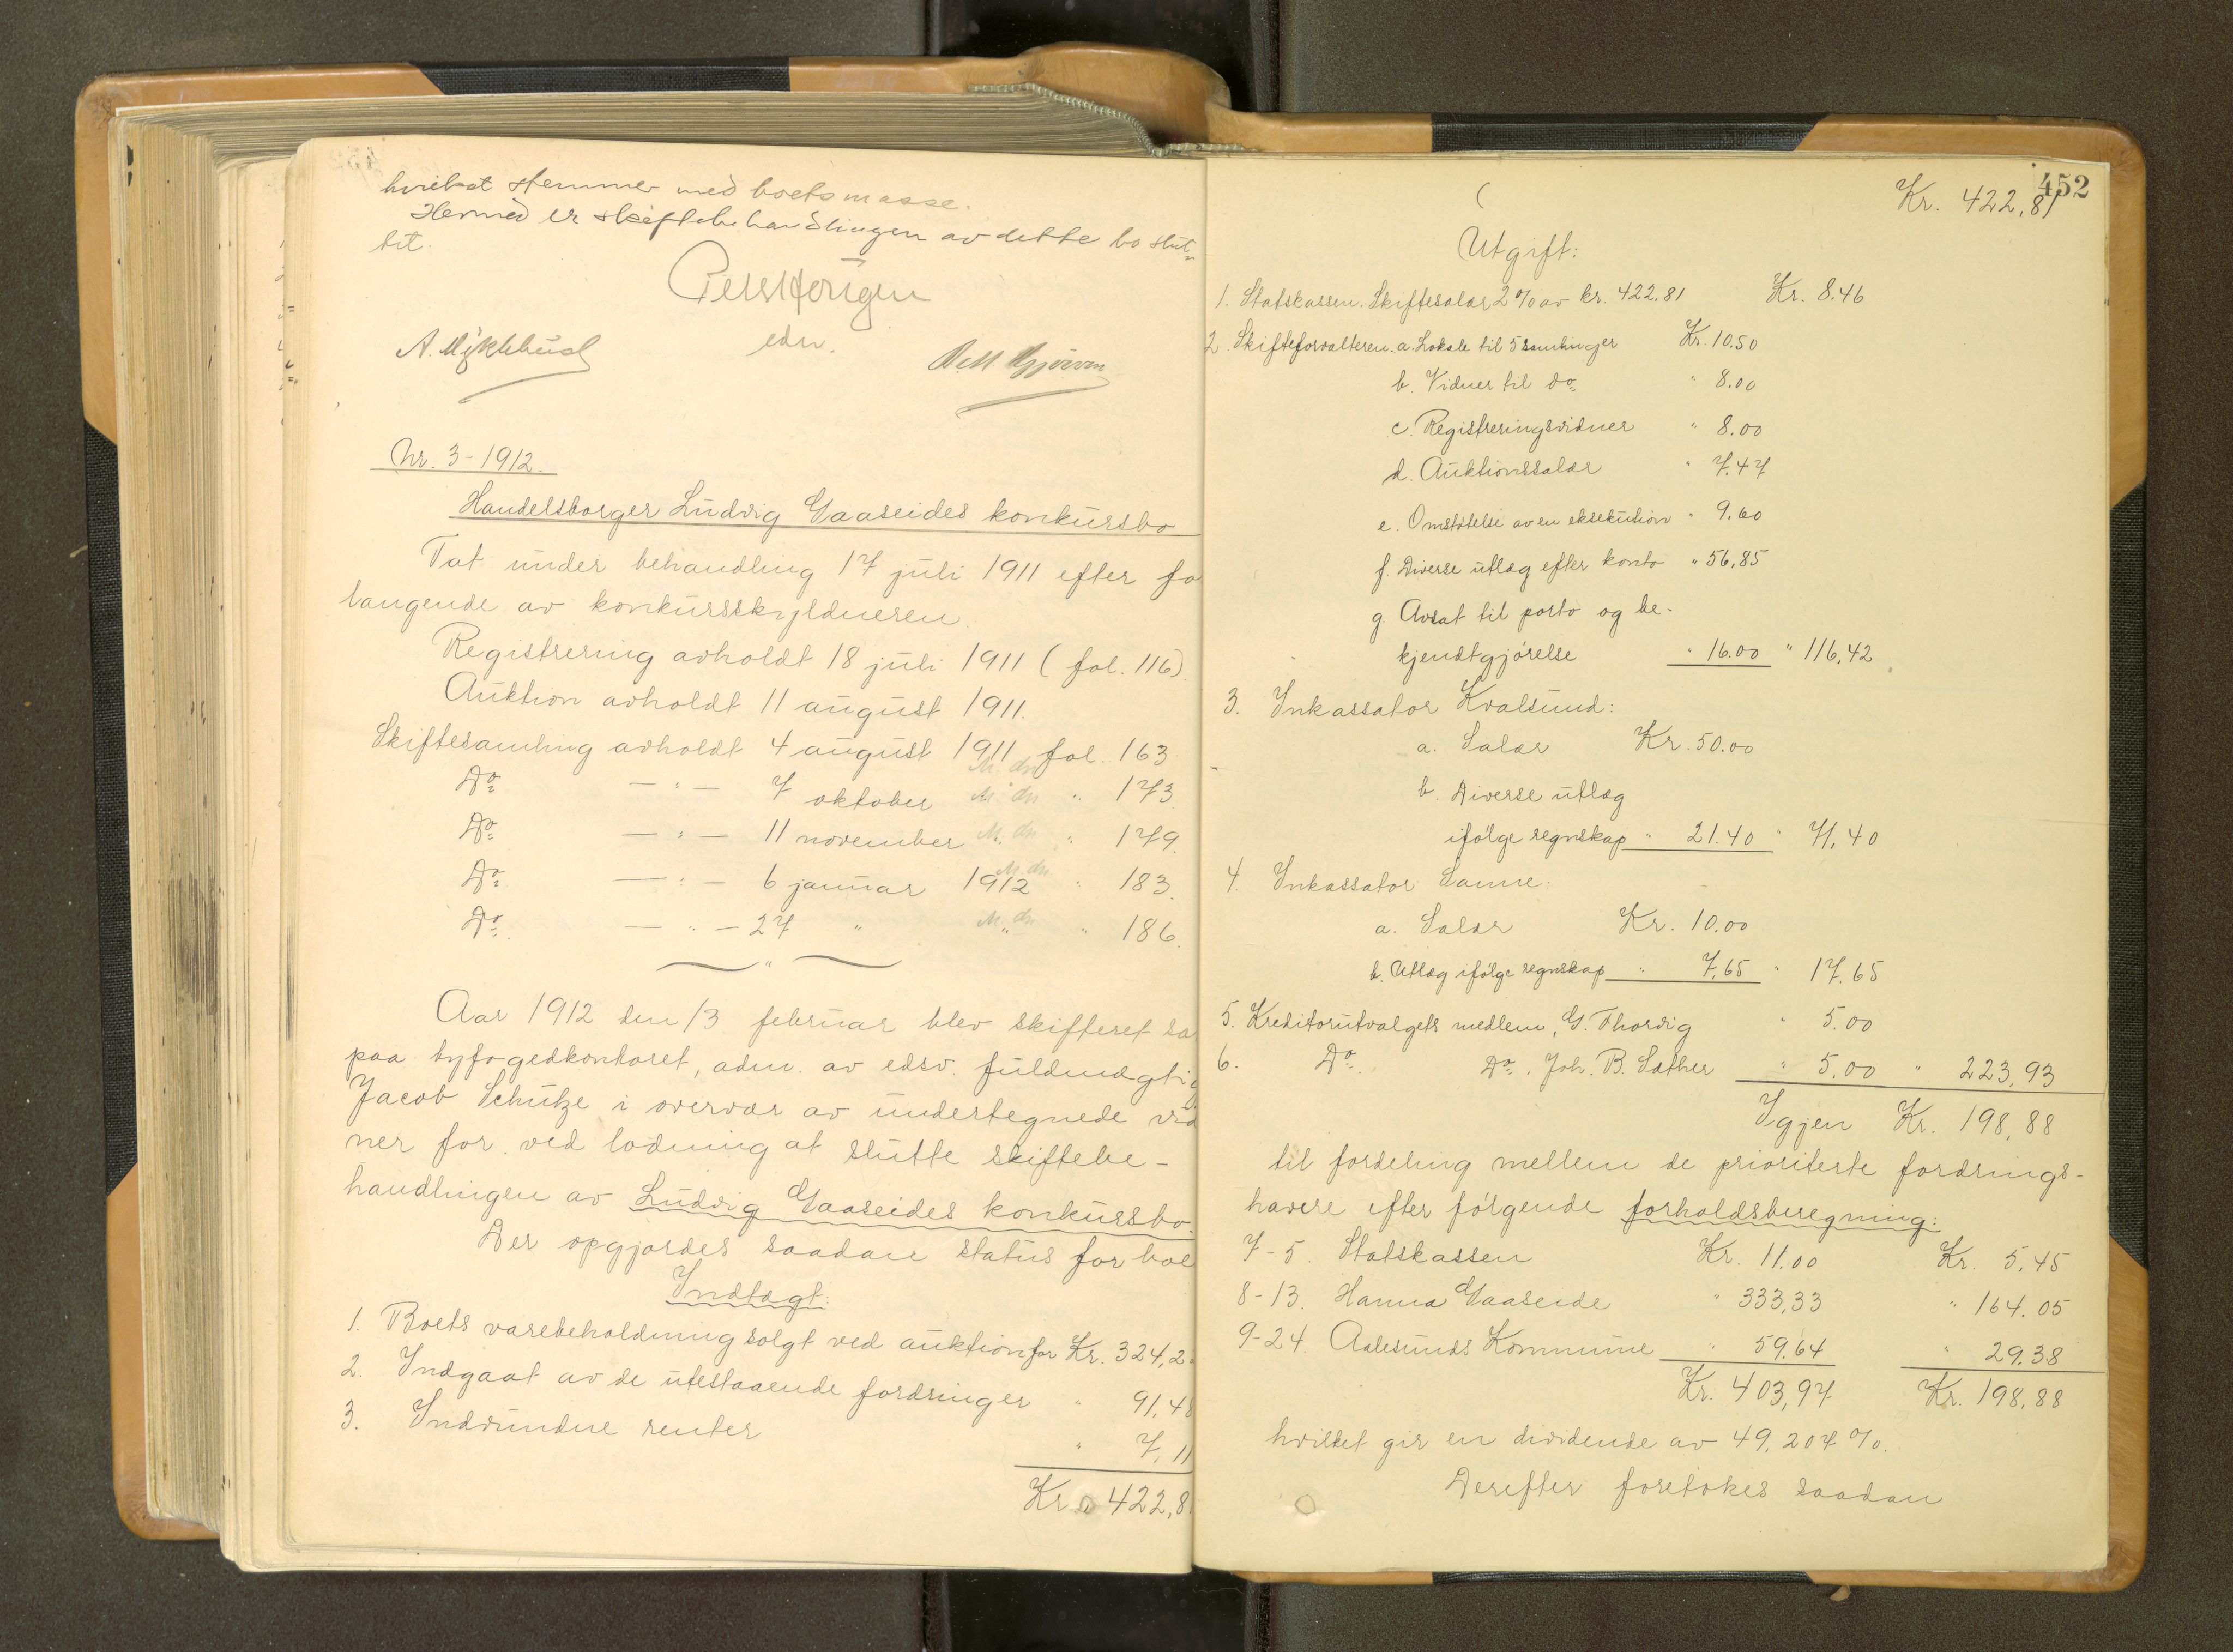 hvilket stemmer med boets masse.
Hermed er skiftebehandlingen av dette bo slut-
tet.
edsv.
A. Myklebust
Nr. 3-1912.
Handelsborger Ludvig Gaaseides konkursbo
Tat under behandling 17 juli 1911 efter fo
langende av konkursskyldneren.
Registrering avholdt 18 juli 1911 (fol. 116).
Auktion avholdt 11 august 1911.
Skiftesamling avholdt 4 august 1911 fol. 163
Do — " — 7 oktober " " 173
Do — " — 11 november " " 179.
Do — " — 6 januar 1912 " 183.
Do — " — 27 " " " 186.
— " —
Aar 1912 den 13 februar blev skifteret sa
paa byfogedkontoret, adm. av edsv. fuldmægtig
Jacob Schütze i overvær av undertegnede vid
ner for ved lodning at slutte skiftebe-
handlingen av Ludvig Gaaseides konkursbo.
Der opgjordes saadan status for boe
Indtægt:
1. Boets varebeholdning solgt ved auktion for Kr. 324,2
2. Indgaat av de utestaaende fordringer " 91,48
3. Indvundne renter " 7,11
Kr. 422,8
452
Kr. 422,81
Utgift:
1. Statskassen. Skiftesalær 2% av kr. 422,81 Kr. 8.46
2. Skifteforvalteren. a. Lokale til 5 samlinger Kr. 10.50
b. Vidner til do " 8.00
c. Registreringsvidner " 8.00
d. Auktionssalær " 7.47
e. Omstøtelse av en eksekution " 9.60
f. Diverse utlæg efter konto " 56,85
g. Avsat til porto og be-
kjendtgjørelse " 16.00 " 116,42
3. Inkassator Kvalsund:
a. Salær Kr. 50.00
b. Diverse utlæg
ifølge regnskap " 21.40 " 71,40
4. Inkassator Sanne:
a. Salær Kr. 10.00
b. Utlæg ifølge regnskap " 7,65 " 17.65
5. Kreditorutvalgets medlem, G. Thorvig " 5.00
6. Do Do. Joh. B. Sæther " 5.00 " 223,93
Igjen Kr. 198,88
til fordeling mellem de prioriterte fordrings-
havere efter følgende forholdsberegning:
7-5. Statskassen Kr. 11.00 Kr. 5.45
8-13. Hanna Gaaseide " 333,33 " 164.05
9-24. Aalesunds Kommune " 59.64 " 29.38
Kr. 403,97 Kr. 198,88
hvilket gir en dividende av 49,207 %.
Derefter foretokes saadan